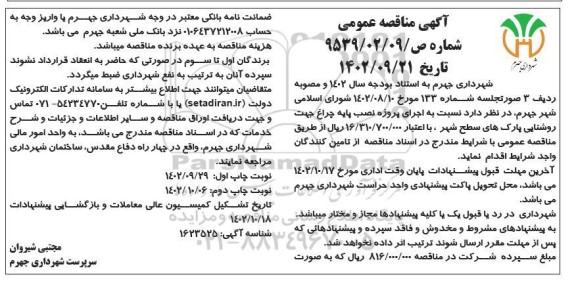 آگهی مناقصه عمومی
شماره ص/۹۵۳۹/۰۲/۰۹
تاریخ ۱۴۰۲/۰۹/۲۱
شهرداری جهرم
شهرداری جهرم به استناد بودجه سال ۱۴۰۲ و مصوبه
ردیف ۳ صورتجلسه شماره ۱۳۳ مورخ ۱۴۰۲/۰۸/۱۰ شورای اسلامی
شهر جهرم، در نظر دارد نسبت به اجرای پروژه نصب پایه چراغ جهت
روشنایی پارک های سطح شهر ، با اعتبار ۱۶/۳۱۰/۷۰۰/۰۰۰ ریال از طریق
مناقصه عمومی با شرایط مندرج در اسناد مناقصه از تامین کنندگان
واجد شرایط اقدام نماید.
آخرین مهلت قبول پیشنهادات پایان وقت اداری مورخ ۱۴۰۲/۱۰/۱۷
می باشد، محل تحویل پاکت پیشنهادی واحد حراست شهرداری جهرم
می باشد.
شهرداری در رد یا قبول یک یا کلیه پیشنهادها مجاز و مختار میباشد.
به پیشنهادهای مشروط و مخدوش و فاقد سپرده و پیشنهادهائی که
پس از مهلت مقرر ارسال شوند ترتیب اثر داده نخواهد شد.
مبلغ سپرده شرکت در مناقصه ۸۱۶/۰۰۰/۰۰۰ ریال که به صورت
ضمانت نامه بانکی معتبر در وجه شهرداری جهرم یا واریز وجه به
حساب ۰۱۰۶۴۳۷۲۱۲۰۰۸ نزد بانک ملی شعبه جهرم می باشد.
هزینه مناقصه به عهده برنده مناقصه میباشد.
برندگان اول تا سوم در صورتی که حاضر به انعقاد قرارداد نشوند
سپرده آنان به ترتیب به نفع شهرداری ضبط میگردد.
متقاضیان میتوانند جهت اطلاع بیشتر به سامانه تدارکات الکترونیک
دولت (setadiran.ir) یا با شماره تلفن ۵۴۲۳۴۷۷۰-۰۷۱ تماس
و جهت دریافت اوراق مناقصه و سایر اطلاعات و جزئیات و شرح
خدمات که در اسناد مناقصه مندرج می باشد، به واحد امور مالی
شهرداری جهرم، واقع در چهار راه دفاع مقدس، ساختمان شهرداری
مراجعه نمایند.
نوبت چاپ اول: ۱۴۰۲/۰۹/۲۹
نوبت چاپ دوم: ۱۴۰۲/۱۰/۰۶
تاریخ تشکیل کمیسیون عالی معاملات و بازگشایی پیشنهادات
۱۴۰۲/۱۰/۱۸
شناسه آگهی: ۱۶۲۳۵۲۵
مجتبی شیروان
سرپرست شهرداری جهرم